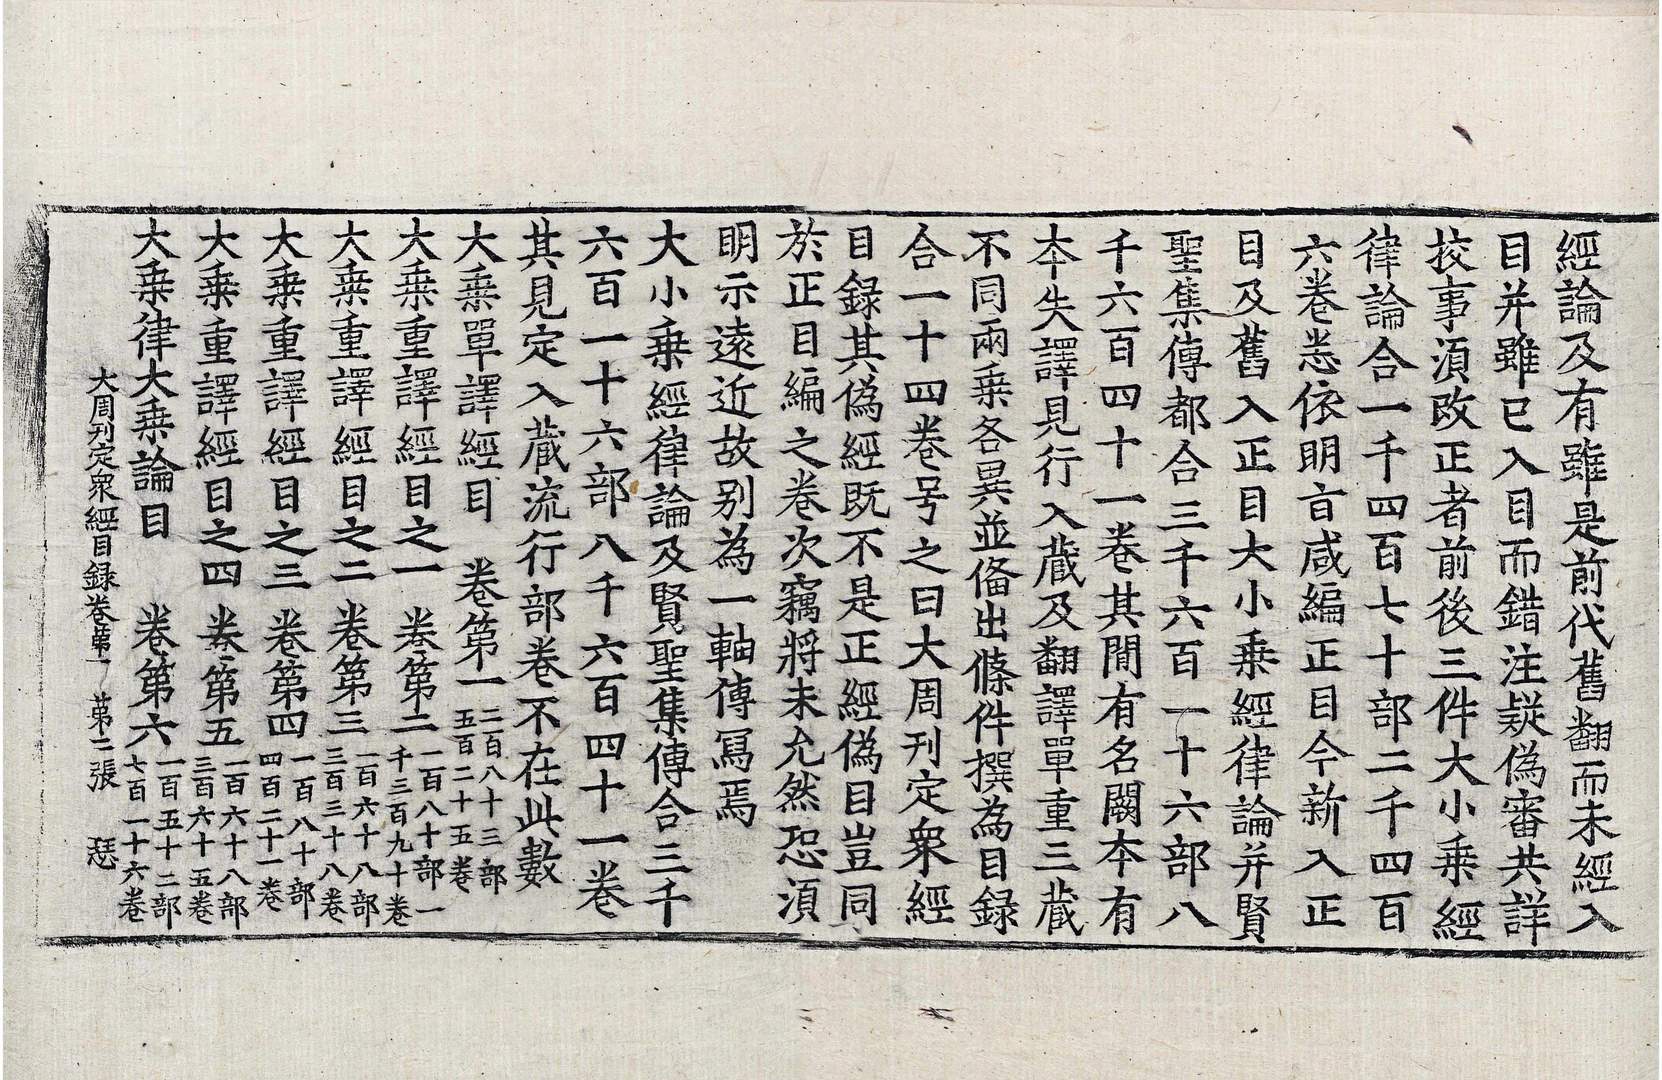 經論及有雖是前代舊翻而未經入
目并雖已入目而錯注疑偽審共詳
挍事湏改正者前後三件大小乗經
律論合一千四百七十部二千四百
六卷悉依明㫖咸編正目今新入正
目及舊入正目大小乗經律論并賢
聖集傳都合三千六百一十六部八
千六百四十一卷其閒有名闕本有
本失譯見行入藏及翻譯單重三藏
不同兩乗各異並俻出條件撰為目録
合一十四卷号之曰大周刊定衆經
目録其偽經既不是正經偽目豈同
於正目編之卷次竊將未允然恐湏
明示遠近故别為一軸傳冩焉
大小乗經律論及賢聖集傳合三千
六百一十六部八千六百四十一卷
其見定入藏流行部卷不在此數
大乗單譯經目 卷第一 二百八十三部 五百二十五卷
大乗重譯經目之一 卷第二 一百八十部一 千三百九十卷
大乗重譯經目之二 卷第三 一百六十八部 三百三十八卷
大乗重譯經目之三 卷第四 一百八十部 四百二十一卷
大乗重譯經目之四 卷第五 一百六十八部 三百六十五卷
大乗律大乗論目 卷第六 一百五十二部 七百一十六卷
大周刊定衆經目録卷第一 第二張 瑟